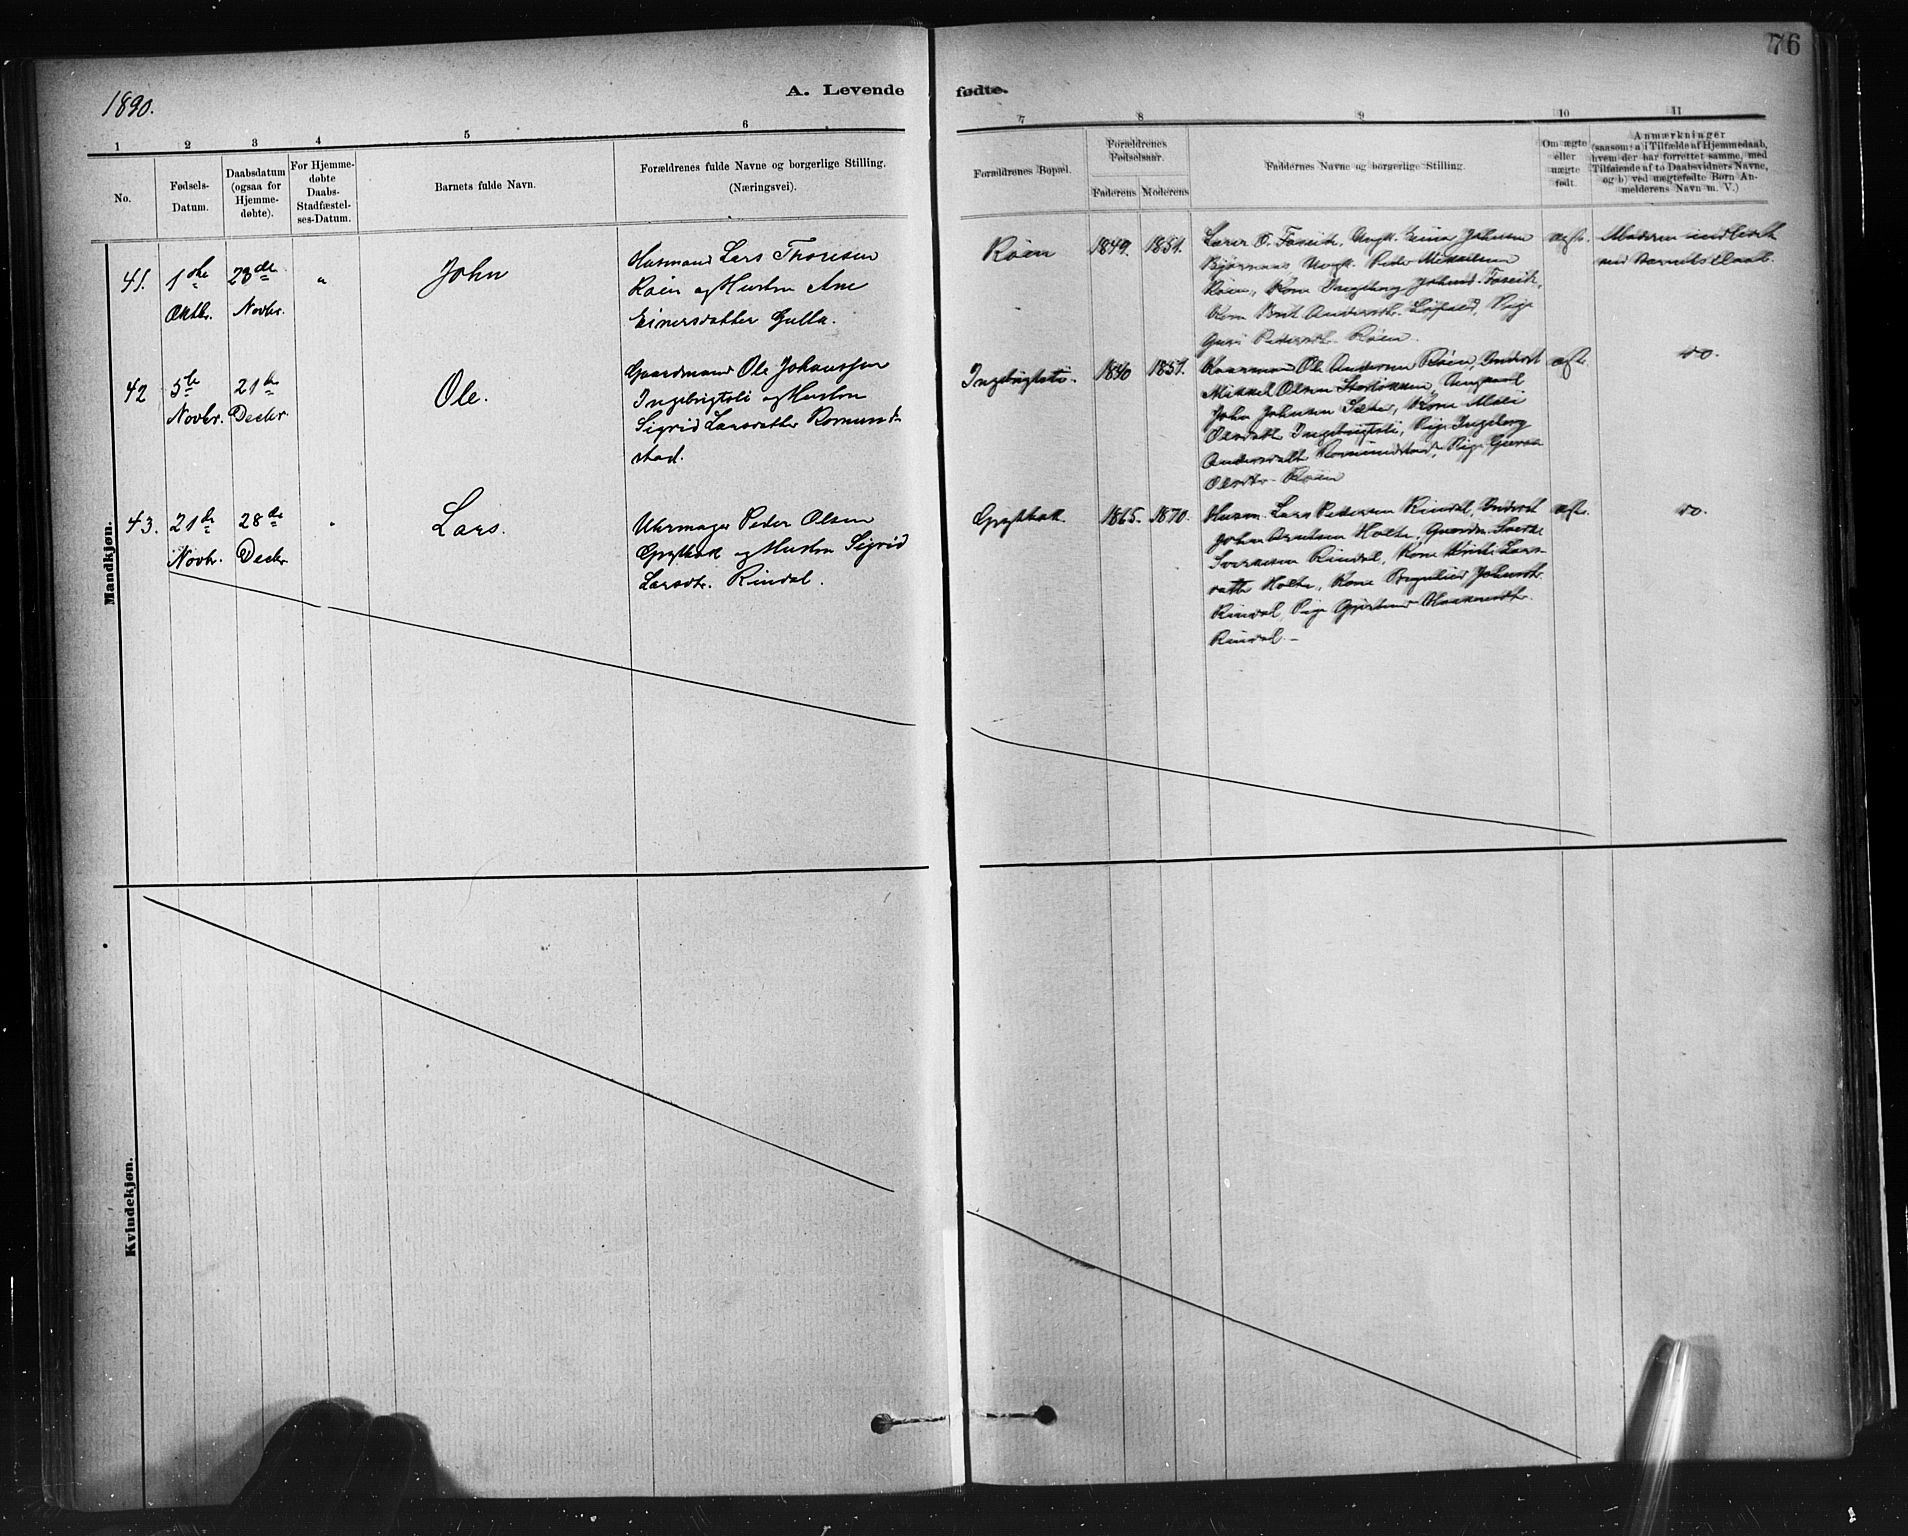 76
1890.
A. Levende fødte.
1 2 3 4 5 6 7 8 9 10 11
No.
Fødsels-
Datum.
Daabsdatum
(ogsaa for
Hjemme-
døbte).
For Hjemme-
døbte
Daabs-
Stadfæstel-
ses-Datum.
Barnets fulde Navn.
Forældrenes fulde Navne og borgerlige Stilling.
(Næringsvei).
Forældrenes Bopæl.
Forældrenes
Fødselsaar.
Faderens Moderens
Faddernes Navne og borgerlige Stilling.
Om ægte
eller
uægte
født.
Anmærkninger
(saasom: a i Tilfælde af Hjemmedaab,
hvem der har forrettet samme, med
Tilføiende af to Daabsvidners Navne,
og b) ved uægtefødte Børn An-
melderens Navn m. V.)
Mandkjøn.
41.
1ste
Oktbr.
23de
Novbr.
"
John
Husmand Lars Thoresen
Røen og Hustru Ane
Einersdatter Gulla.
Røen
1849. 1851.
Lærer O. Fosseide, Ungk. Einar Johnsen
Bjørnaas Ungk. Peder Mikkelsen
Røen, Kone Ingeborg Johnsd.
Kone Brit Andersdtr. Pige
Guri Pedersdtr. Røen.
ægte.
Moderen indledet
ved Barnets Daab.
42
5te
Novbr.
21de
Decbr
Ole.
Gaardmand Ole Johanssen
Ingebrigtsli og Hustru
Sigrid Larsdatter Romund-
stad.
Ingebrigtsli.
1840 1851.
Ole Andersen Røen,
Mikkel Olsen Ungkarl
John Johnsen Sæter, Kone Mali
Olsdatter Ingebrigtsli, Pige Ingeborg
Andersdatter Romundstad, Pige Guroa
Olsdtr. Røen
ægte.
do.
43.
21de
Novbr.
28de
Decbr
"
Lars.
Uhrmager Peder Olsen
Grytbak og Hustru Sigrid
Larsdtr. Rindal.
Grytbak.
1865. 1870.
Husm. Lars Pedersen Rindal,
John Arntsen Holte, Gaardm. Sverke
Sversen Rindal, Kone Lars-
datter Holte, Kone Johnsdtr.
Rindal, Pige Gjertrud
Rindal. –
ægte.
do.
Kvindekjøn.